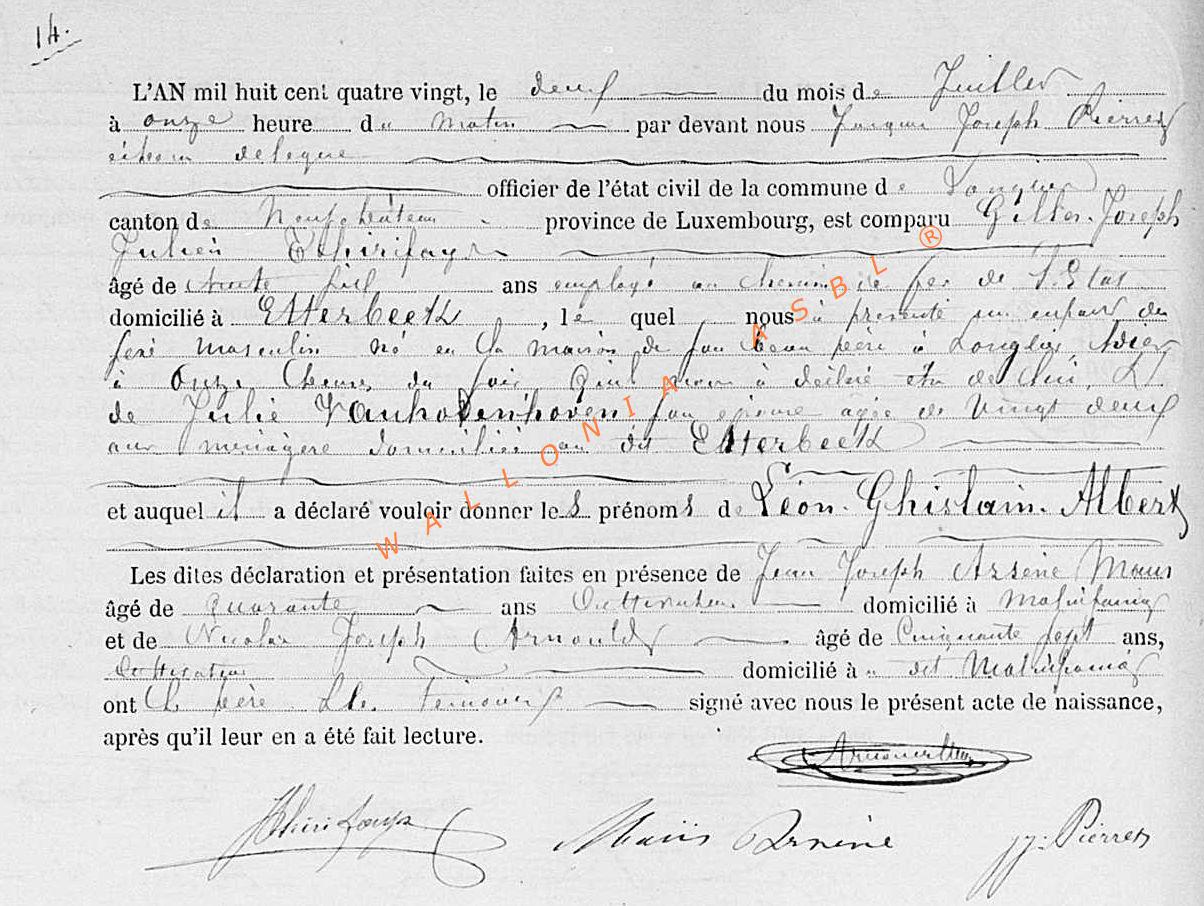 14.
L'AN mil huit cent quatre vingt, le deux du mois de Juillet
à onze heure du Matin par devant nous Jacques Joseph Pierret
échevin délégué
officier de l'état civil de la commune de Longlier
canton de Neufchâteau province de Luxembourg, est comparu Gilles-Joseph
Julien Thirifays
âgé de trente six ans employé au chemin de fer de l'Etat
domicilié à Etterbeeck, le quel nous a présenté un enfant du
sexe masculin né en la maison de son beau père à Longlier, hier
à onze heures du soir, qu'il nous a déclaré etre de lui, Et
de Julie son épouse agée de vingt deux
ans ménagère domiciliée au dit Etterbeeck
et auquel il a déclaré vouloir donner les prénoms de Léon-Ghislain-Albert
Les dites déclaration et présentation faites en présence de Jean Joseph Arsène Maus
âgé de Quarante ans Cultivateur domicilié à Molinfaing
et de Nicolas Joseph Arnould âgé de Cinquante sept ans,
Cultivateur domicilié à u dit Molinfaing
ont Le père Les temoins signé avec nous le présent acte de naissance,
après qu'il leur en a été fait lecture.
Arnould
Thirifays Maus Arsène jj. Pierret
WALLONIA ASBL ®